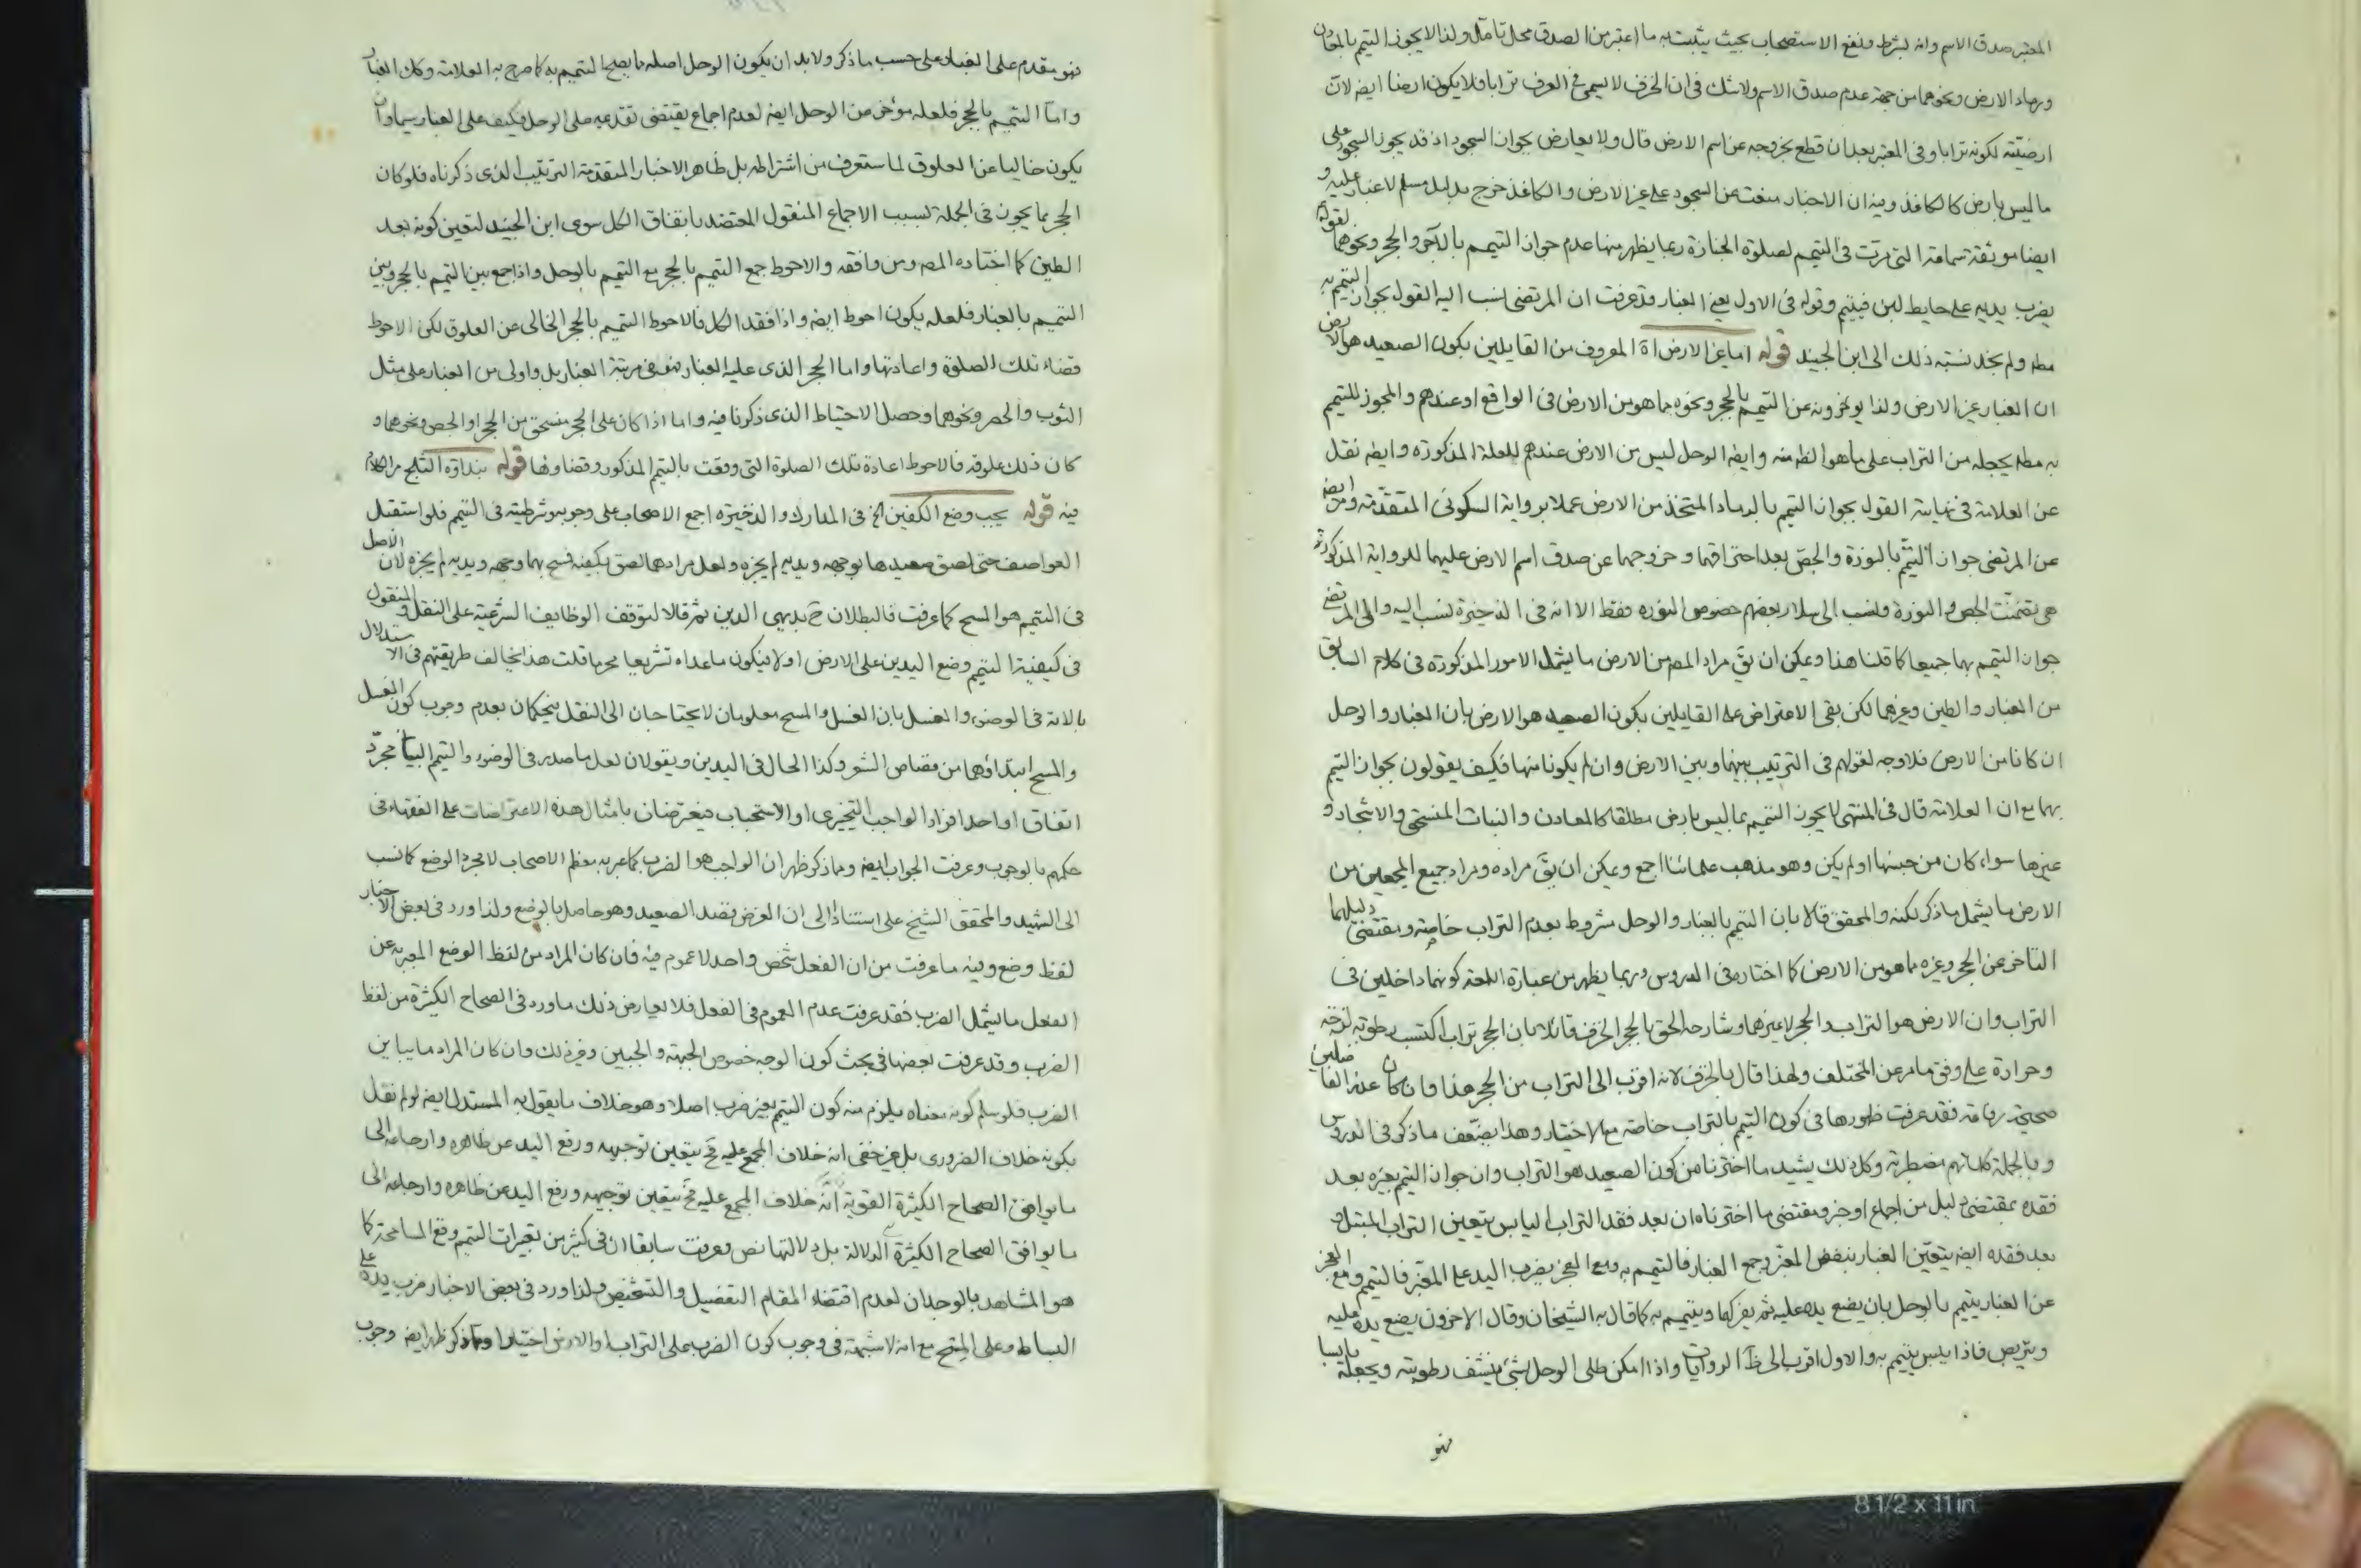 المعتبر صدق الاسم وانه لشرط ونفع الاستصحاب بحيث يثبت به ما اعتبر من الصدق محل تامل ولذا لا يجوز التيمم بالمعادن
ورماد الارض ونحوهما من جهة عدم صدق الاسم ولا شك في ان الخزف لا يسمى في العرف ترابا فلا يكون ارضا ايضا لان
ارضيته لكونه ترابا وفي المعتبر بعد ان قطع بخروجه عن اسم الارض قال ولا يعارض بجواز السجود اذ قد يجوز السجود على
ما ليس بارض كالكاغذ وفيه ان الاخبار منعت عن السجود على غير الارض والكاغذ خرج بدليل مسلم لا غبار عليه و
ايضا موثقة سماعة التي مرت في التيمم لصلوة الجنازة ربما يظهر منها عدم جواز التيمم بالآجر والحجر ونحوهما لقوله
يضرب يديه على حايط لبن فيتيمم وقوله في الاول يعني الغبار قد عرفت ان المرتضى نسب اليه القول بجواز التيمم به
مطه ولم نجد نسبته ذلك الى ابن الجنيد قوله اما غير الارض اه المعروف من القايلين بكون الصعيد هو الارض
ان الغبار غير الارض ولذا يؤخرونه عن التيمم بالحجر ونحوه مما هو من الارض في الواقع او عندهم والمجوز للتيمم
به مطه يجعله من التراب على ما هو الظ منه وايضا الوحل ليس من الارض عندهم للعلة المذكورة وايضه نقل
عن العلامة في نهايته القول بجواز التيمم بالرماد المتخذ من الارض عملا برواية السكوني المتقدمة ومر ايضه
عن المرتضى جواز التيمم بالنورة والجص بعد احتراقهما وخروجهما عن صدق اسم الارض عليهما للرواية المذكورة
هي تضمنت الجص والنورة ونسب الى سلار بعضهم خصوص النوره فقط الا انه في الذخيرة نسب اليه والى المرتضى
جواز التيمم بهما جميعا كما قلنا هذا ويمكن ان يق مراد المصه من الارض ما يشمل الامور المذكورة في كلام السابق
من الغبار والطين وغيرهما لكن بقي الاعتراض على القايلين بكون الصعيد هو الارض بان الغبار والوحل
ان كانا من الارض فلا وجه لقولهم في الترتيب بينهما وبين الارض وان لم يكونا منها فكيف يقولون بجواز التيمم
بهما مع ان العلامة قال في المنتهى لا يجوز التيمم بما ليس بارض مطلقا كالمعادن والنبات المنسحق والاشجار و
غيرها سواء كان من جنسها او لم يكن وهو مذهب علمائنا اجمع ويمكن ان يق مراده ومراد جميع المجمعين من
الارض ما يشمل ما ذكر لكنه والمحقق قالا بان التيمم بالغبار والوحل مشروط بعدم التراب خاصة ومقتضى دليلهما
التاخر عن الحجر وغيره مما هو من الارض كما اختاره في الدروس وربما يظهر من عبارة اللمعة كونهما داخلين في
التراب وان الارض هو التراب والحجر لا غيرها وشارحه الحق بالحجر الخزف قائلا بان الحجر تراب اكتسب رطوبة لزجة
وحرارة على وفق ما مر عن المختلف ولهذا قال بالخزف لانه اقرب الى التراب من الحجر هذا وان كان عند الفاضلين
صحيحة رفاعة فقد عرفت ظهورها في كون التيمم بالتراب خاصة مع الاختيار وهذا يضعف ما ذكر في الدروس
وبالجملة كلماتهم مضطربة وكل ذلك يشيد ما اخترنا من كون الصعيد هو التراب وان جواز التيمم بغيره بعد
فقده بمقتضى دليل من اجماع او خبر ومقتضى ما اخترناه ان بعد فقد التراب اليابس يتعين التراب المبتل و
بعد فقده ايضه يتعين الغبار بنفض المغبر وجمع الغبار فالتيمم به ومع العجز يضرب اليد على المغبر فالتيمم ومع العجز
عن الغبار يتيمم بالوحل بان يضع يده عليه ثم يفركها ويتيمم به كما قال به الشيخان وقال الاخرون يضع يده عليه
ويتربص فاذا يبس يتيمم به والاول اقرب الى ظ الروايات واذا امكن طلي الوحل بشئ ينشف رطوبته ويجعله يابسا
فهو
فهو مقدم على الغبار على حسب ما ذكر ولا بد ان يكون الوحل اصله ما يصح التيمم به كما صرح به العلامة وكك الغبار
واما التيمم بالحجر فلعله مؤخر من الوحل ايضه لعدم اجماع يقتضي تقدمه على الوحل فكيف على الغبار سيما وان
يكون خاليا عن العلوق لما ستعرف من اشتراطه بل ظاهر الاخبار المتقدمة الترتيب الذي ذكرناه فلو كان
الحجر مما يجوز في الجملة بسبب الاجماع المنقول المعتضد باتفاق الكل سوى ابن الجنيد لتعين كونه بعد
الطين كما اختاره المصه ومن وافقه والاحوط جمع التيمم بالحجر مع التيمم بالوحل واذا جمع بين التيمم بالحجر وبين
التيمم بالغبار فلعله يكون احوط ايضه واذا فقد الكل فالاحوط التيمم بالحجر الخالي عن العلوق لكن الاحوط
قضاء تلك الصلوة واعادتها واما الحجر الذي عليه الغبار فهو في مرتبة الغبار بل واولى من الغبار على مثل
الثوب والحصر ونحوهما وحصل الاحتياط الذي ذكرنا فيه واما اذا كان على الحجر منسحق من الحجر او الجص ونحوهما و
كان ذلك علوقه فالاحوط اعادة تلك الصلوة التي وقعت بالتيمم المذكور وقضاؤها قوله بنداوة الثلج مر الكلام
فيه قوله يجب وضع الكفين الخ في المدارك والذخيرة اجمع الاصحاب على وجوبه وشرطيته في التيمم فلو استقبل
العواصف حتى لصق صعيدها بوجهه ويديه لم يجزه ولعل مرادهما لصق بكفيه فمسح بهما وجهه ويديه لم يجزه لان الاصل
في التيمم هو المسح كما عرفت فالبطلان ح بديهي الدين ثم قالا لتوقف الوظايف الشرعية على النقل والمنقول
في كيفية التيمم وضع اليدين على الارض اولا فيكون ما عداه تشريعا محرما قلت هذا يخالف طريقتهم في الاستدلال
بالاية في الوضوء والغسل بان الغسل والمسح معلومان لا يحتاجان الى النقل فيحكمان بعدم وجوب كون الغسل
والمسح ابتداؤهما من قصاص الشعر وكذا الحال في اليدين ويقولان لعل ما صدر في الوضوء والتيمم البياني مجرد
اتفاق او احد افراد الواجب التخييري او الاستحباب فيعترضان بامثال هذه الاعتراضات على الفقهاء في
حكمهم بالوجوب وعرفت الجواب ايضه ومما ذكر ظهر ان الواجب هو الضرب كما عبر به معظم الاصحاب لا مجرد الوضع كما نسب
الى الشهيد والمحقق الشيخ علي استنادا الى ان الغرض قصد الصعيد وهو حاصل بالوضع ولذا ورد في بعض الاخبار
لفظ وضع وفيه ما عرفت من ان الفعل شخص واحد لا عموم فيه فان كان المراد من لفظ الوضع المعبر به عن
الفعل ما يشمل الضرب فقد عرفت عدم العموم في الفعل فلا يعارض ذلك ما ورد في الصحاح الكثيرة من لفظ
الضرب وقد عرفت بعضها في بحث كون الوجه خصوص الجبهة والجبين وغير ذلك وان كان المراد ما يباين
الضرب فلو سلم كونه معناه يلزم منه كون التيمم بغير ضرب اصلا وهو خلاف ما يقول به المستدل ايضه لو لم نقل
بكونه خلاف الضروري بل غير خفي انه خلاف المجمع عليه فح يتعين توجيهه ورفع اليد عن ظاهره وارجاعه الى
ما يوافق الصحاح الكثيرة القوية انه خلاف المجمع عليه فح يتعين توجيهه ورفع اليد عن ظاهره وارجاعه الى
ما يوافق الصحاح الكثيرة الدلالة بل دلالتها نص وعرفت سابقا ان في كثير من تعبيرات التيمم وقع المسامحة كما
هو المشاهد بالوجدان لعدم اقتضاء المقام التفصيل والتشخيص ولذا ورد في بعض الاخبار ضرب يده على
البساط وعلى المسح مع انه لا شبهة في وجوب كون الضرب على التراب او الارض اختيارا ومما ذكر ظهر ايضه وجوب